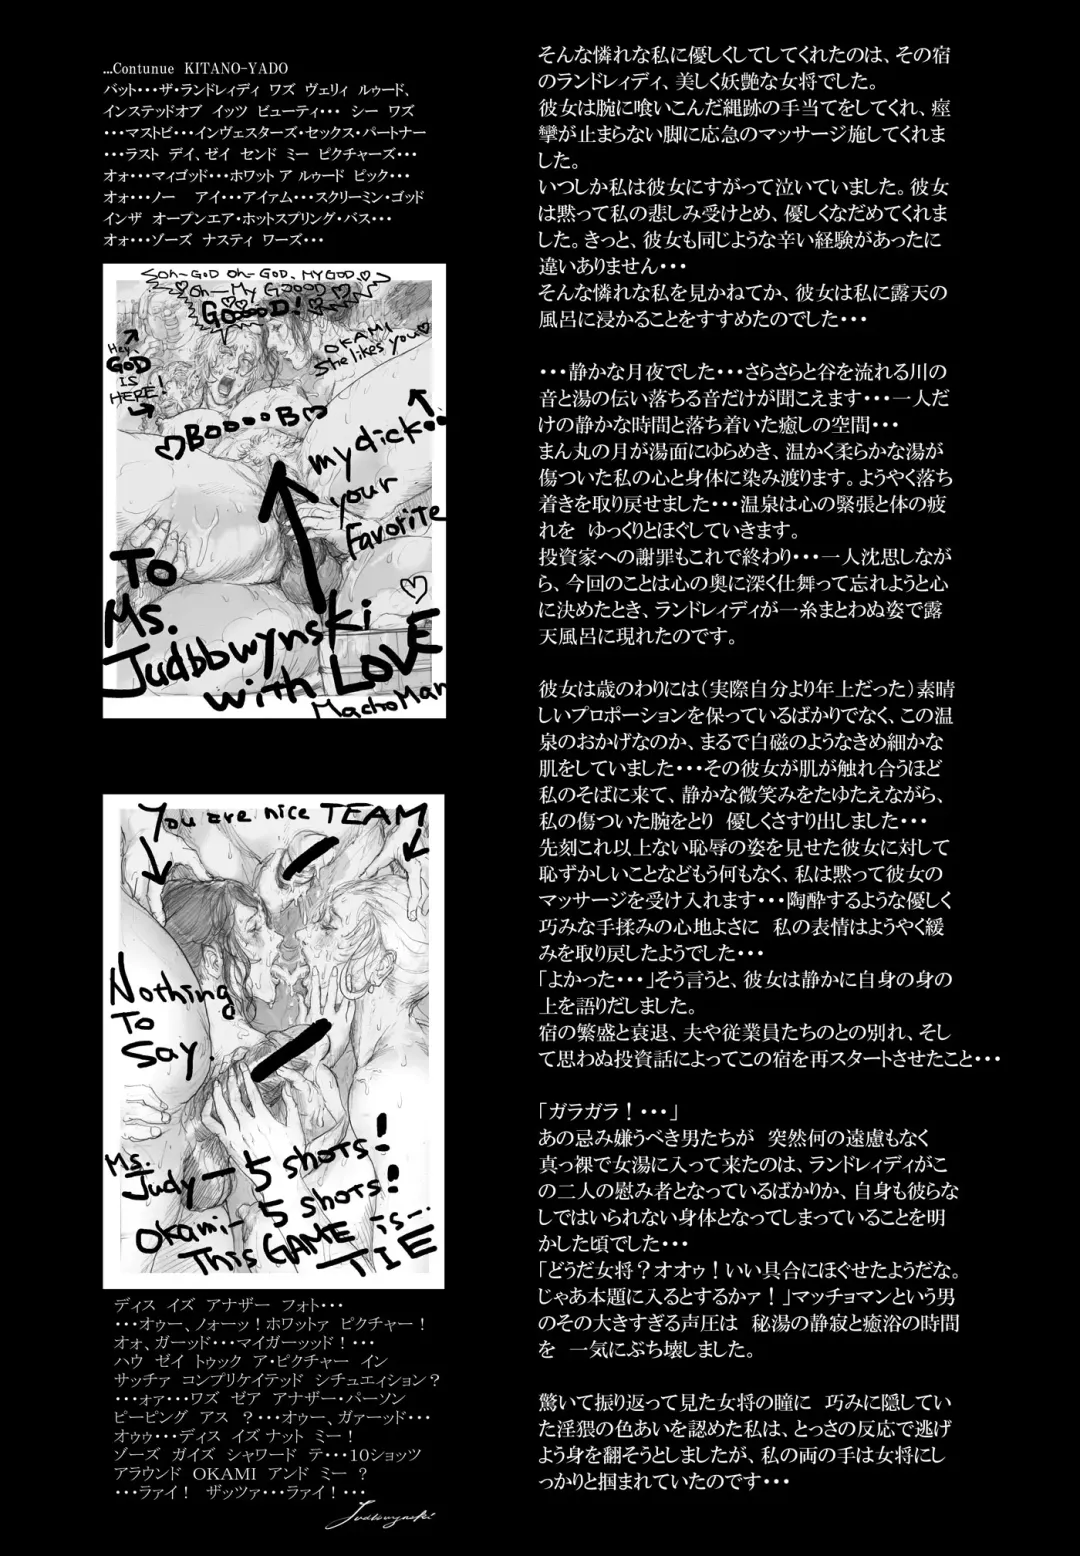 …Contunue KITANO-YADO
バット・・・ザ・ランドレィディ ワズ ヴェリィ ルゥード、
インステッドオブ イッツ ビューティ・・・ シー ワズ
・・・マストビ・・・インヴェスターズ・セックス・パートナー
・・・ラスト デイ、ゼイ センド ミー ピクチャーズ・・・
オォ・・・マィゴッド・・・ホワット ア ルゥード ピック・・・
オォ・・・ノー アイ・・・アイァム・・・スクリーミン・ゴッド
インザ オープンエア・ホットスプリング・バス・・・
オォ・・・ゾーズ ナスティ ワーズ・・・
Soh-GOD Oh-GOD, MY GOD♡
♡Oh-My GOOOD♡
GOOOOD!
Hey,
GOD
IS
HERE!
OKAMI
She likes you♡
♡BOOOOB♡
my dick・・・
your
Favorite
♡
To
Ms.
Judbbwynski
with LOVE
MachoMan
You are nice TEAM
Nothing
To
Say.
Ms.
Judy-5 shots!
Okami-5 shots!
This GAME is-
TIE
ディス イズ アナザー フォト・・・
・・・オゥー、ノォーッ！ホワットァ ピクチャー！
オォ、ガーッド・・・マイガーッッド！・・・
ハウ ゼイ トゥック ア・ピクチャー イン
サッチァ コンプリケイテッド シチュエィション？
・・・ォァ・・・ワズ ゼア アナザー・パーソン
ピーピング アス ？・・・オゥー、ガァーッド・・・
オゥゥ・・・ディス イズ ナット ミー！
ゾーズ ガイズ シャワード テ・・・10ショッツ
アラウンド OKAMI アンド ミー ？
・・・ラァイ！ ザッツァ・・・ラァイ！・・・
Judbbwynski
そんな憐れな私に優しくしてしてくれたのは、その宿
のランドレィディ、美しく妖艶な女将でした。
彼女は腕に喰いこんだ縄跡の手当てをしてくれ、痙
攣が止まらない脚に応急のマッサージ施してくれま
した。
いつしか私は彼女にすがって泣いていました。彼女
は黙って私の悲しみ受けとめ、優しくなだめてくれま
した。きっと、彼女も同じような辛い経験があったに
違いありません・・・
そんな憐れな私を見かねてか、彼女は私に露天の
風呂に浸かることをすすめたのでした・・・
・・・静かな月夜でした・・・さらさらと谷を流れる川の
音と湯の伝い落ちる音だけが聞こえます・・・一人だ
けの静かな時間と落ち着いた癒しの空間・・・
まん丸の月が湯面にゆらめき、温かく柔らかな湯が
傷ついた私の心と身体に染み渡ります。ようやく落ち
着きを取り戻せました・・・温泉は心の緊張と体の疲
れを ゆっくりとほぐしていきます。
投資家への謝罪もこれで終わり・・・一人沈思しなが
ら、今回のことは心の奥に深く仕舞って忘れようと心
に決めたとき、ランドレィディが一糸まとわぬ姿で露
天風呂に現れたのです。
彼女は歳のわりには（実際自分より年上だった）素晴
しいプロポーションを保っているばかりでなく、この温
泉のおかげなのか、まるで白磁のようなきめ細かな
肌をしていました・・・その彼女が肌が触れ合うほど
私のそばに来て、静かな微笑みをたゆたえながら、
私の傷ついた腕をとり 優しくさすり出しました・・・
先刻これ以上ない恥辱の姿を見せた彼女に対して
恥ずかしいことなどもう何もなく、私は黙って彼女の
マッサージを受け入れます・・・陶酔するような優しく
巧みな手揉みの心地よさに 私の表情はようやく緩
みを取り戻したようでした・・・
「よかった・・・」そう言うと、彼女は静かに自身の身の
上を語りだしました。
宿の繁盛と衰退、夫や従業員たちのとの別れ、そし
て思わぬ投資話によってこの宿を再スタートさせたこと・・・
「ガラガラ！・・・」
あの忌み嫌うべき男たちが 突然何の遠慮もなく
真っ裸で女湯に入って来たのは、ランドレィディがこ
の二人の慰み者となっているばかりか、自身も彼らな
しではいられない身体となってしまっていることを明
かした頃でした・・・
「どうだ女将？オオゥ！いい具合にほぐせたようだな。
じゃあ本題に入るとするかァ！」マッチョマンという男
のその大きすぎる声圧は 秘湯の静寂と癒浴の時間
を 一気にぶち壊しました。
驚いて振り返って見た女将の瞳に 巧みに隠してい
た淫猥の色あいを認めた私は、とっさの反応で逃げ
よう身を翻そうとしましたが、私の両の手は女将にし
っかりと掴まれていたのです・・・